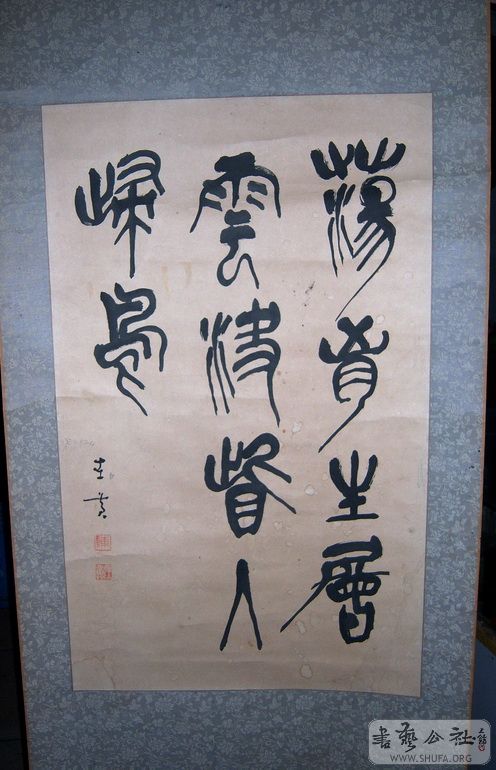 蕩胸生層
雲決眥入
歸鳥
書藝公社
WWW.SHUFA.ORG